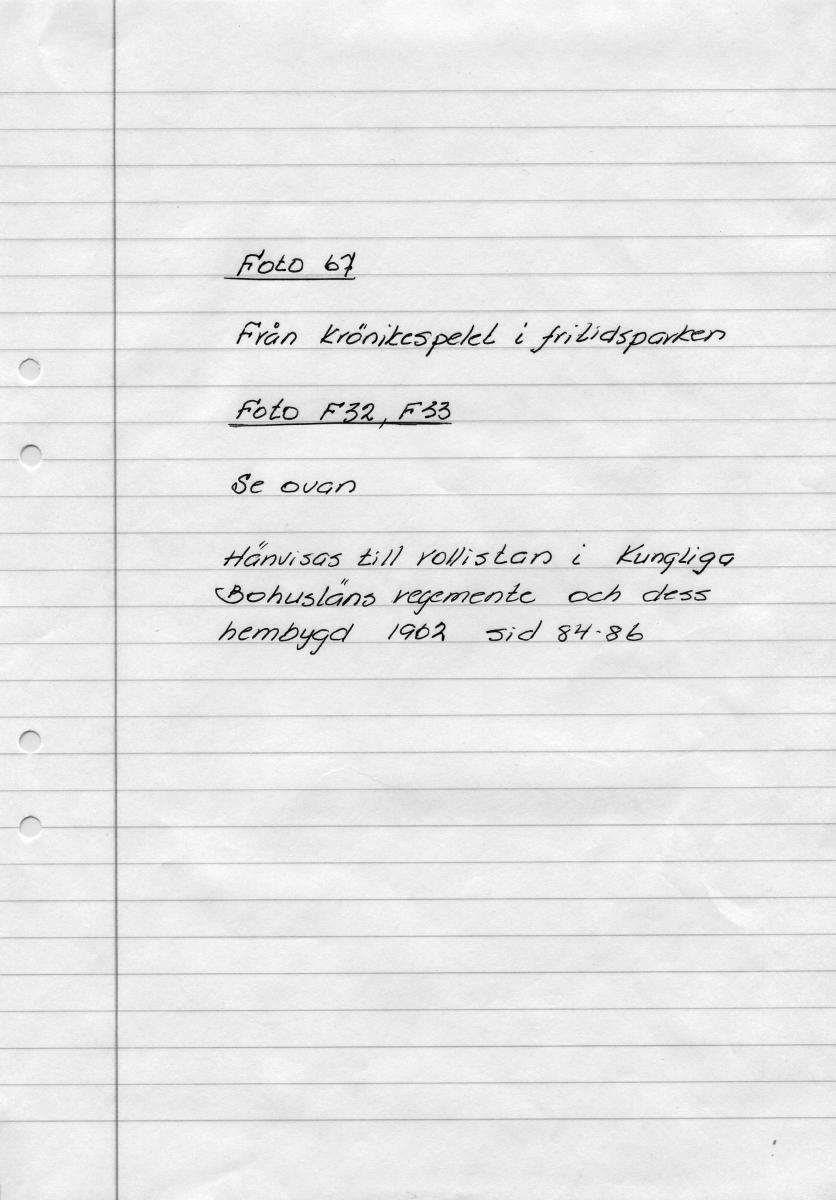 Foto 67
Från krönikespelet i fritidsparken
Foto F32, F33
Se ovan
Hänvisas till rollistan i Kungliga
Bohusläns regemente och dess
hembygd 1962 sid 84-86